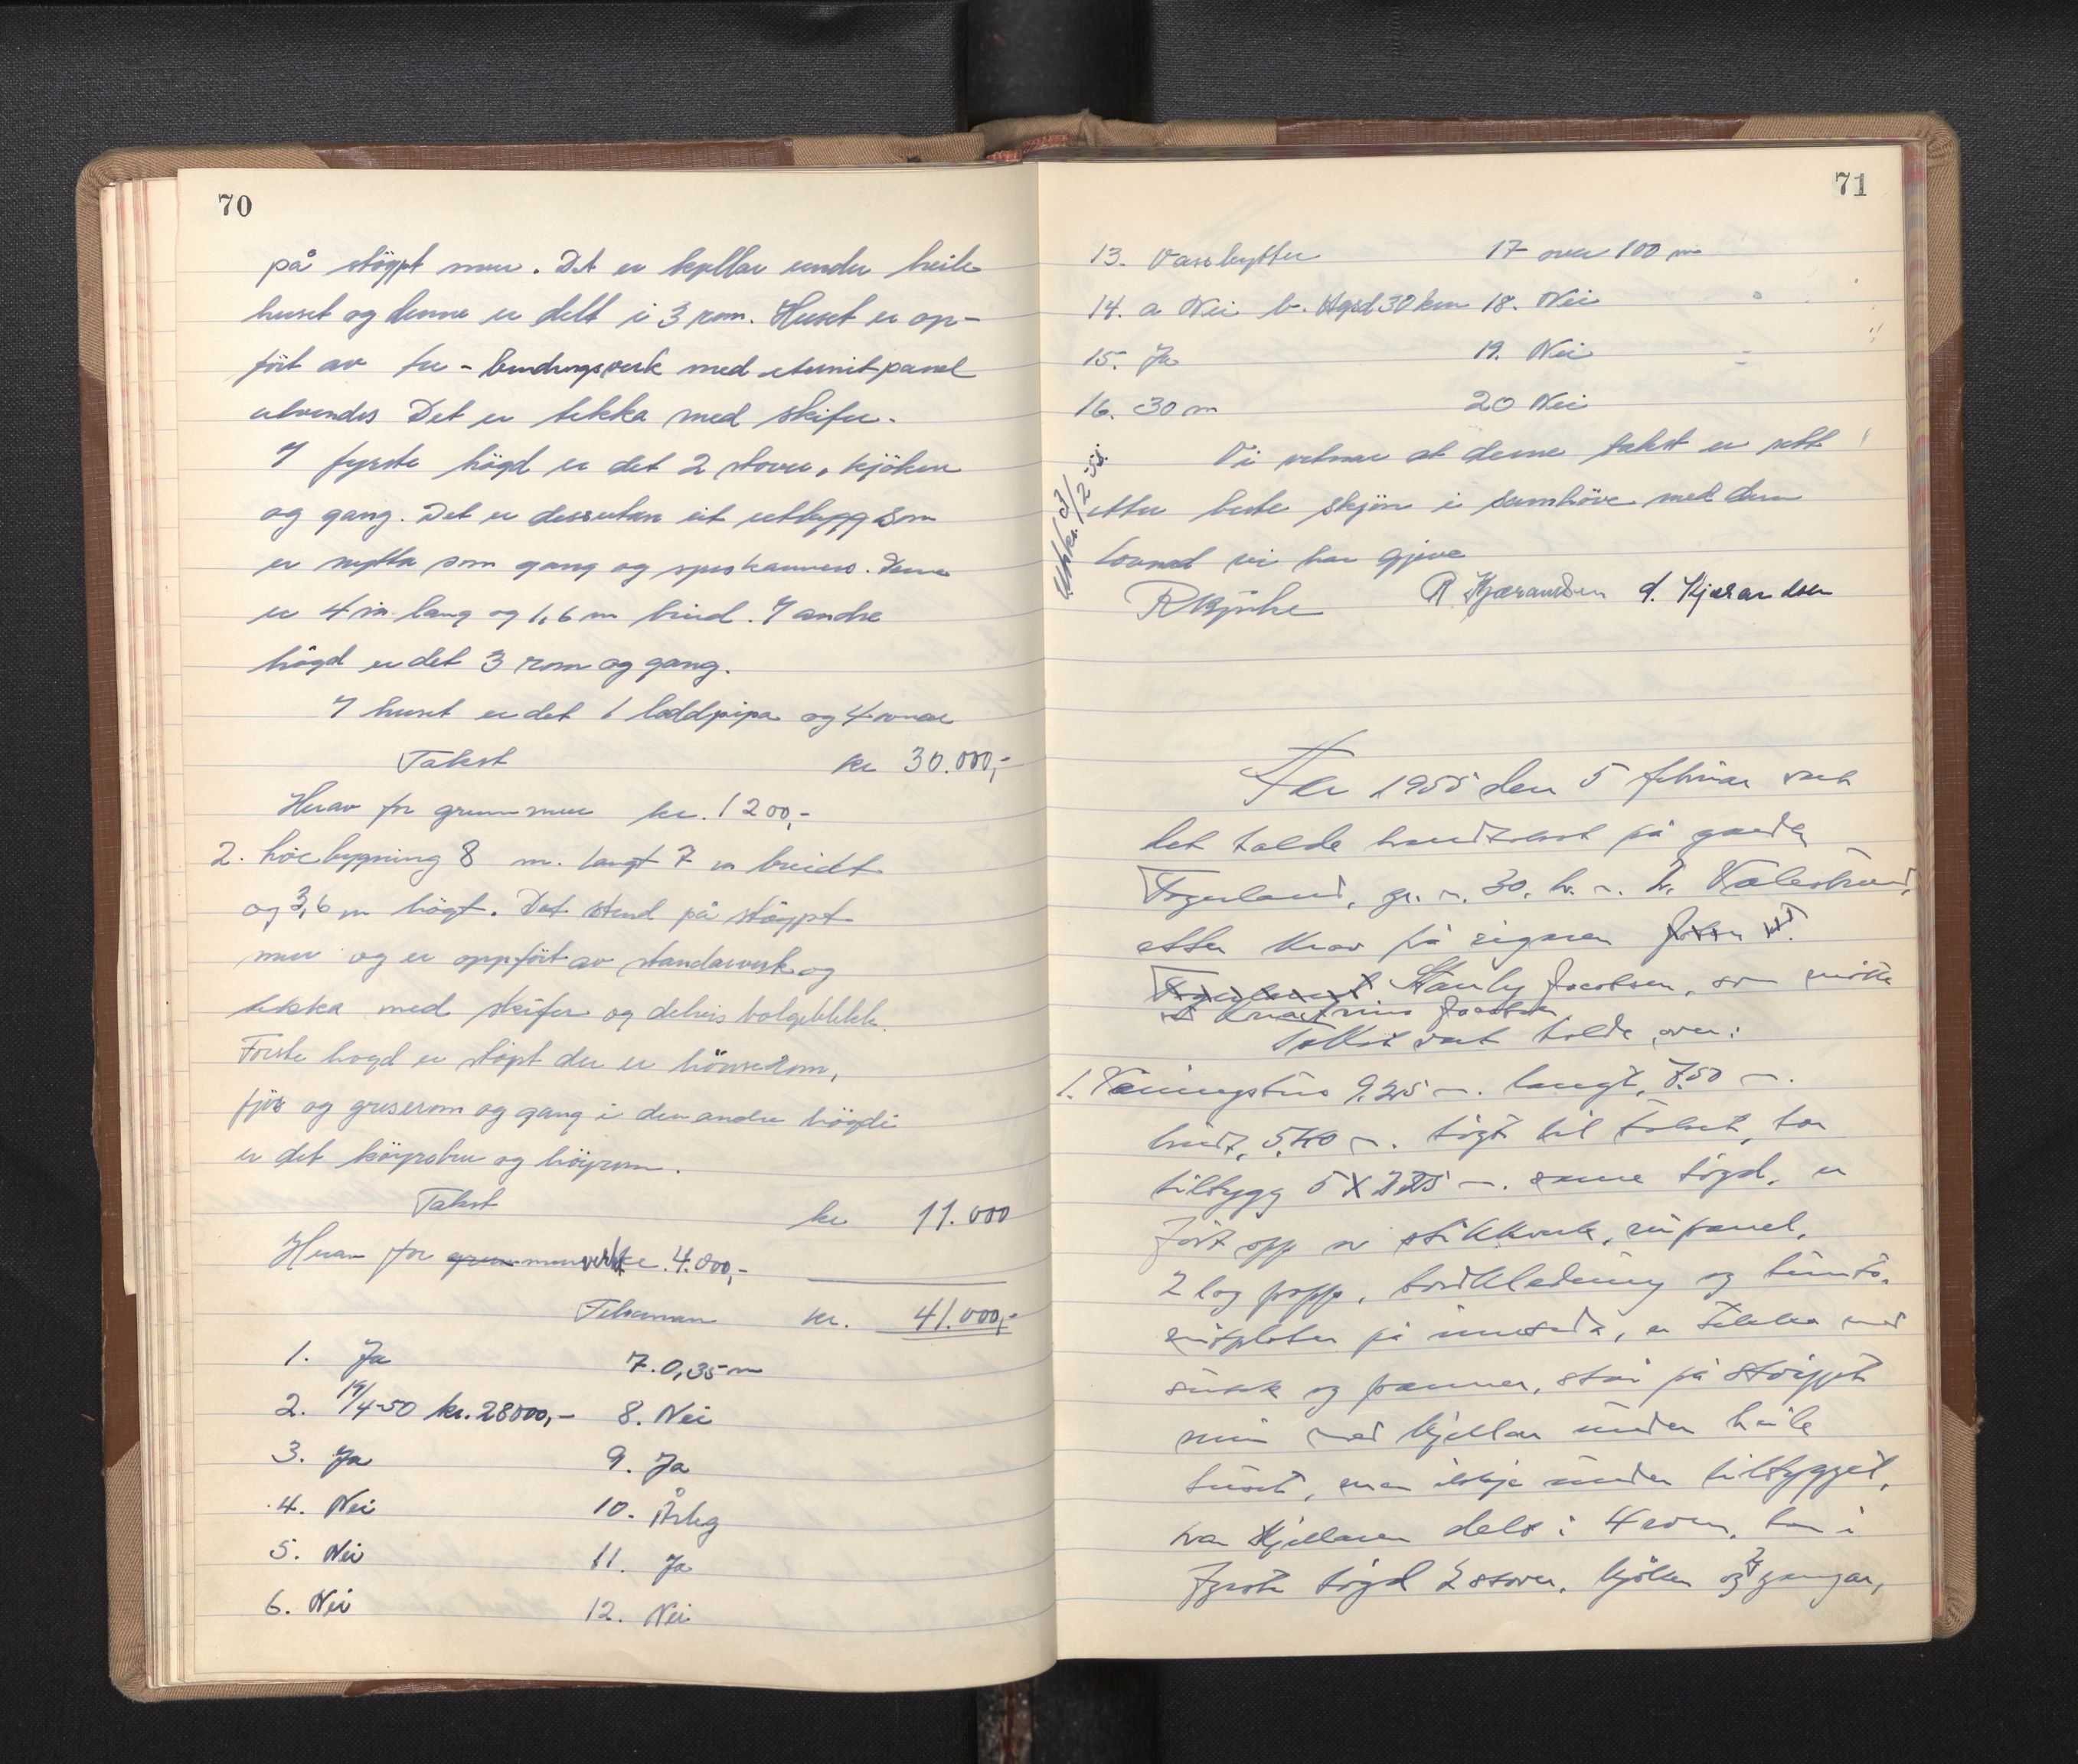 70
på støypt mur. Det er kjellar under heile
huset og denne er delt i 3 rom. Huset er op-
ført av tre-bindingsverk med eternitpanel
utvendes Det er tekka med skifer.
I fyrste högd er det 2 stover, kjöken
og gang. Det er dessutan eit utbygg som
er nytta som gang og speskammers. Denne
er 4 m lang og 1,6 m breid. I andre
högd er det 3 rom og gang.
I huset er det 1 loddpipa og 4 omnar
Takst kr 30.000,-
Herav for grunnmur kr. 1200,-
2. Löebygning 8 m. langt 7 m breidt
og 3,6 m högt. Det stend på støypt
mur og er oppfört av standarverk og
tekka med skifer og delvis bølgeblekk.
Förste høgd er støpt der er hönserom,
fjös og griserom og gang i den andre högdi
er det köyrebru og höyrom.
Takst kr 11.000
Herav for murverk kr. 4.000,-
Tilsaman kr. 41.000,-
1. Ja 7. 0,35 m
2. 19/4-50 kr. 28000,- 8. Nei
3. Ja 9. Ja
4. Nei 10. Årleg
5. Nei 11. Ja
6. Nei 12. Nei
71
13. Vassbytter 17 over 100 m
14. a Nei b. 30 km 18. Nei
15. Ja 19. Nei
16. 30 m 20 Nei
Vi vitnar at denne takst er sett
etter beste skjön i samhöve med den
lovnad vi har gjeve
R Kjærandsen d. Kjærandsen
Utskr. 9/2 55.
År 1955 den 5 februar vart
det halde branntakst på garden
Fagerland, gr. n. 30, br. n. 2, Valestrand,
etter krav frå eigaren
Stanly Jacobsen, som
Jacobsen
Takst vart halde over:
1. Våningshus 9,25 m. langt, 7,50 m.
breidt, 5,40 m. högt til halvt, har
tilbygg 5 X m. same högd, er
fört opp av stikkverk, panel,
2 lag papp, bordkledning og
plater på innsida, er tekka med
og pannor, står på støypt
mur med kjellar under heile
huset, men ikkje under tilbygget,
har kjellaren delt i 4 rom, har i
fyrste högd 2 stover, kjöken og 2 gangar,